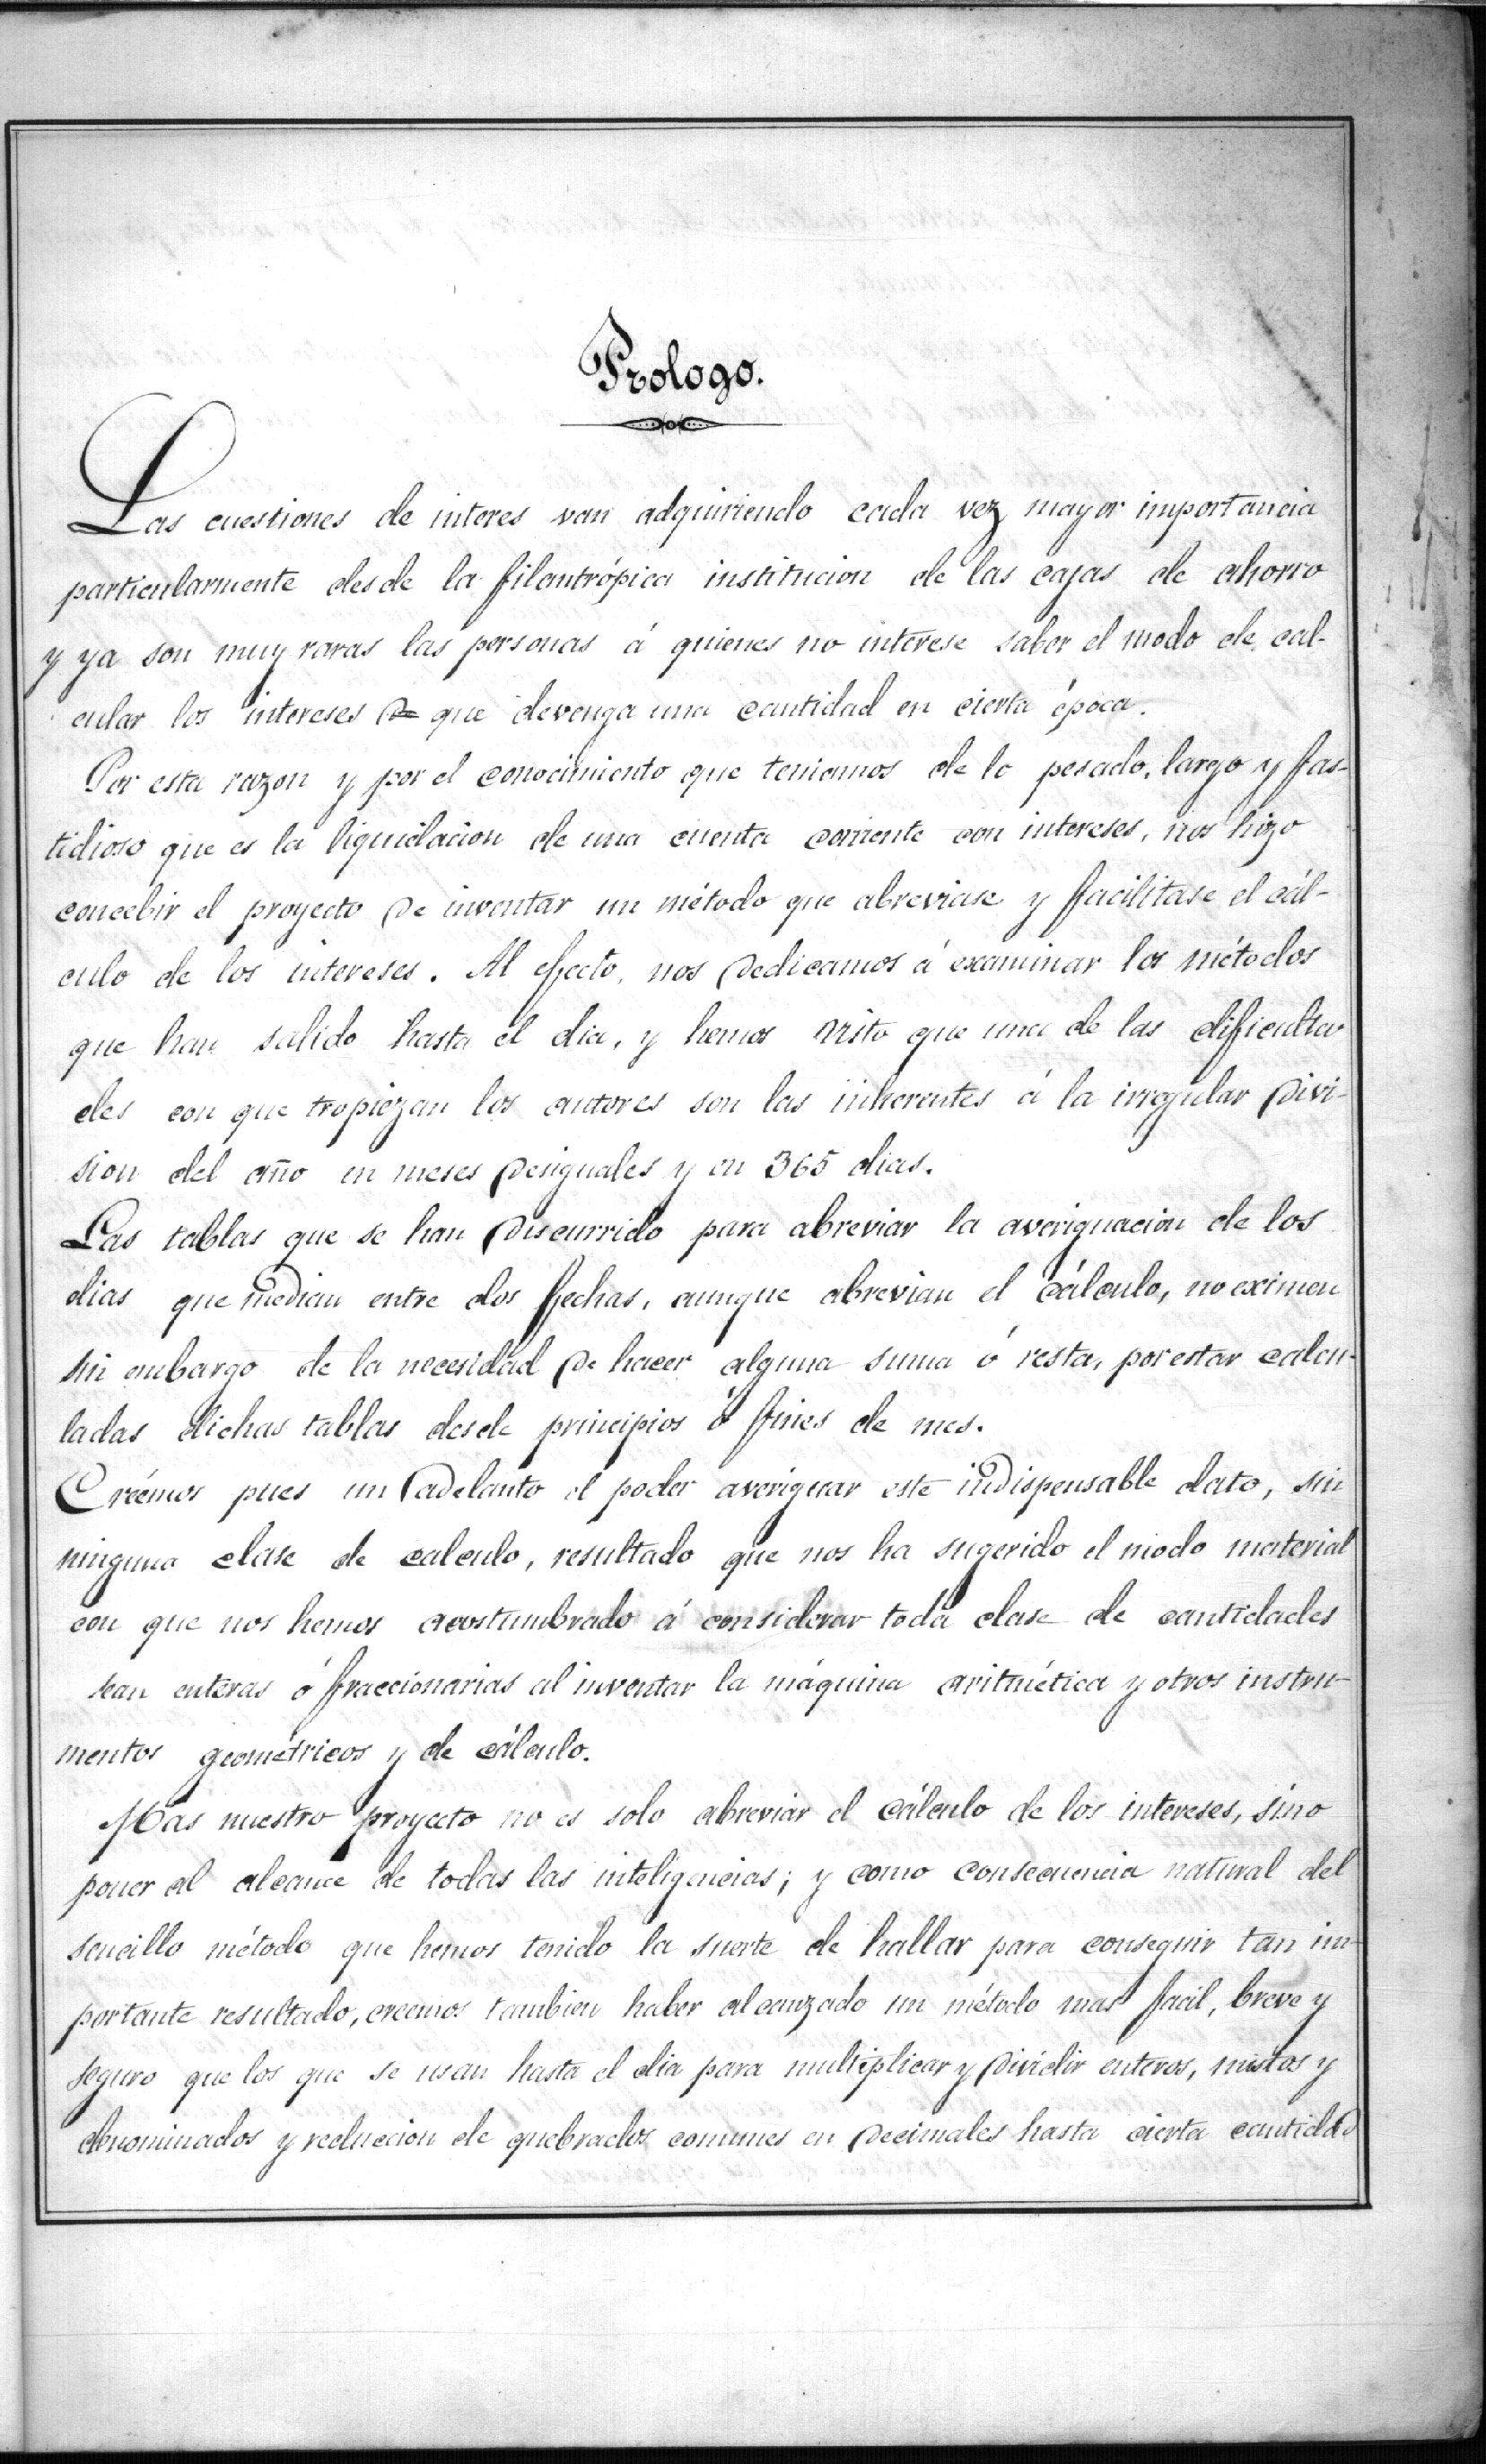 Prologo.
Las cuestiones de interes van adquiriendo cada vez mayor importancia
particularmente desde la filantrópica institucion de las cajas de ahorro
y ya son muy raras las personas á quienes no interese saber el modo de cal-
cular los intereses de que devenga una cantidad en cierta época.
Por esta razon y por el conocimiento que teniamos de lo pesado, largo y fas-
tidioso que es la liquidacion de una cuenta corriente con intereses, nos hizo
concebir el proyecto de inventar un método que abreviase y facilitase el cál-
culo de los intereses. Al efecto, nos dedicamos á examinar los métodos
que han salido hasta el dia, y hemos visto que una de las dificulta-
des con que tropiezan los autores son las inherentes á la irregular divi-
sion del año en meses desiguales y en 365 dias.
Las tablas que se han discurrido para abreviar la averiguacion de los
dias que median entre dos fechas, aunque abrevian el cálculo, no eximen
sin embargo de la necesidad de hacer alguna suma ó resta, por estar calcu-
ladas dichas tablas desde principios ó fines de mes.
Creémos pues un adelanto el poder averiguar este indispensable dato, sin
ninguna clase de calculo, resultado que nos ha sugerido el modo material
con que nos hemos acostumbrado á considerar toda clase de cantidades
sean enteras ó fraccionarias al inventar la máquina aritmética y otros instru-
mentos geométricos y de cálculo.
Mas nuestro proyecto no es solo abreviar el cálculo de los intereses, sino
poner al alcance de todas las inteligencias; y como consecuencia natural del
sencillo método que hemos tenido la suerte de hallar para conseguir tan im-
portante resultado, creemos tambien haber alcanzado un método mas facil, breve y
seguro que los que se usan hasta el dia para multiplicar y dividir enteros, mistos y
denominados y reduccion de quebrados comunes en decimales hasta cierta cantidad